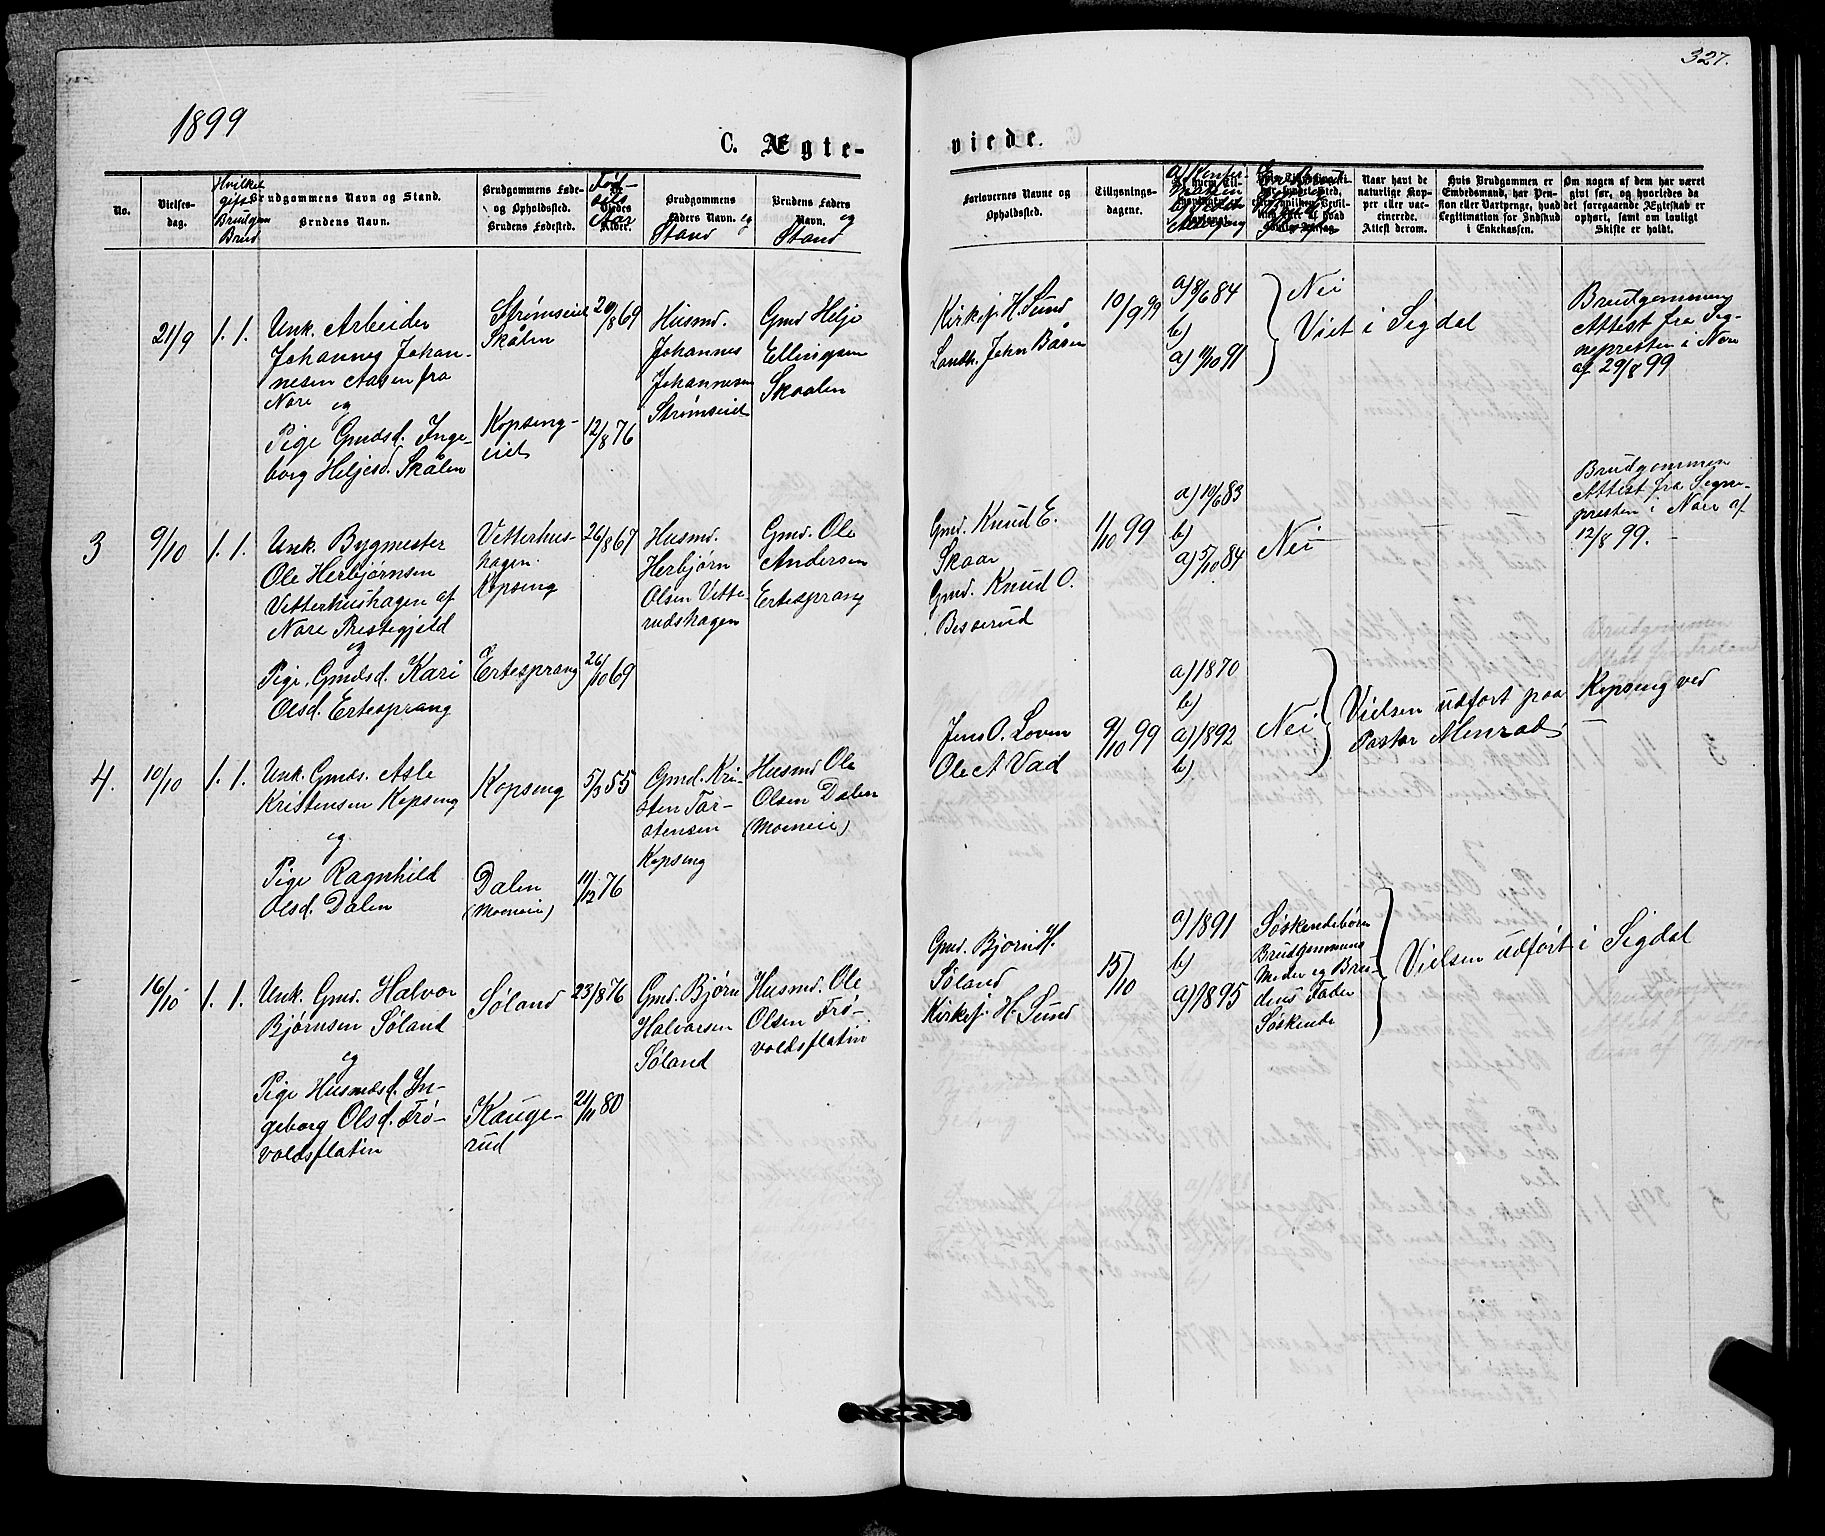 327.
1899
C. Ægte-
viede.
No.
Vielses-
dag.
Hvilket
gift
Brudgom
Brud
Brudgommens Navn og Stand.
Brudens Navn.
Brudgommens Føde-
og Opholdssted.
Brudens Fødested.
Fød-
sels
Aar
Brudgommens
Faders Navn. og
Stand
Brudens Faders
Navn. og
Stand
Forlovernes Navne og
Opholdssted.
Tillysnings-
dagene.
Naar havt de
naturlige Kop-
per eller vac-
cinerede.
Attest derom.
Hvis Brudgommen er
Embedsmand, har Pen-
sion eller Vartpenge, hvad
Legitimation for Indskud
i Enkekassen.
Om nogen af dem har været
gift før, og hvorledes da
det foregaaende Ægteskab er
ophørt, samt om lovligt
Skifte er holdt.
21/9
1. 1.
Unk. Arbeider
Johannes Johan-
nesen Aasen fra
Nore og
Pige Gmdsd. Inge-
borg Heljesd. Skålen
Strømseiet
Skålen
Kopseng-
eiet
20/8 69
12/8 76
Husmd.
Johannes
Johannesen
Strømseiet
Gmd Helje
Ellingsen
Skaalen
Kirkesj. H. Sund
Landh. John Båsen
10/9 99
a) 8/6 84
b)
a) 11/10 91
Nei
Viet i Sigdal
Brudgommens
Attest fra Sog-
nepresten i Nore
af 29/8 99
3
9/10
1. 1.
Unk. Bygmester
Ole Herbjørnsen
Vetterhushagen af
Nore Prestegjeld
og
Pige Gmdsd. Kari
Olsd. Ertesprang
Vetterhus-
hagen.
Kopseng
Ertesprang
26/8 67
26/10 69
Husmd.
Herbjørn
Olsen Vette-
rudshagen
Gmd. Ole
Andersen
Ertesprang
Gmd. Knud E.
Skaar
Gmd. Knud O.
Besserud
1/10 99
a) 10/6 83
b)
a) 5/10 84
Nei
Brudgommen
Attest fra Sogne-
presten i Nore af
12/8 99.
4.
10/10
1. 1.
Unk. Gmds. Asle
Kristensen Kopseng
og
Pige Ragnhild
Olsd. Dalen
Kopseng
Dalen
(Moeneie)
5/3 55
11/12 76
Gmd. Kri-
sten Tor-
stensen
Kopseng
Husmd Ole
Olsen Dalen
(Moeneie)
Jens O. Loven
Ole A Vad
9/10 99
a) 1870
b)
a) 1892
b)
Nei
Vielsen udført paa Kopseng ved
Pastor Menrad
16/10
1. 1.
Unk. Gmd. Halvor
Bjørnsen Søland
og
Pige Husmdsd. In-
geborg Olsd. Frø-
voldsflatin
Søland
Kauge-
rud
23/8 76
21/11 80
Gmd. Bjørn
Halvorsen
Søland
Husmd. Ole
Olsen Frø-
voldsflatin
Gmd. Bjørn H.
Søland
Kirkesj. H. Sund
15/10
a) 1891
b)
a) 1895
Søskendebørn
Brudgommens
Moder og Bru-
dens Fader
Søskende
Vielsen udført i Sigdal